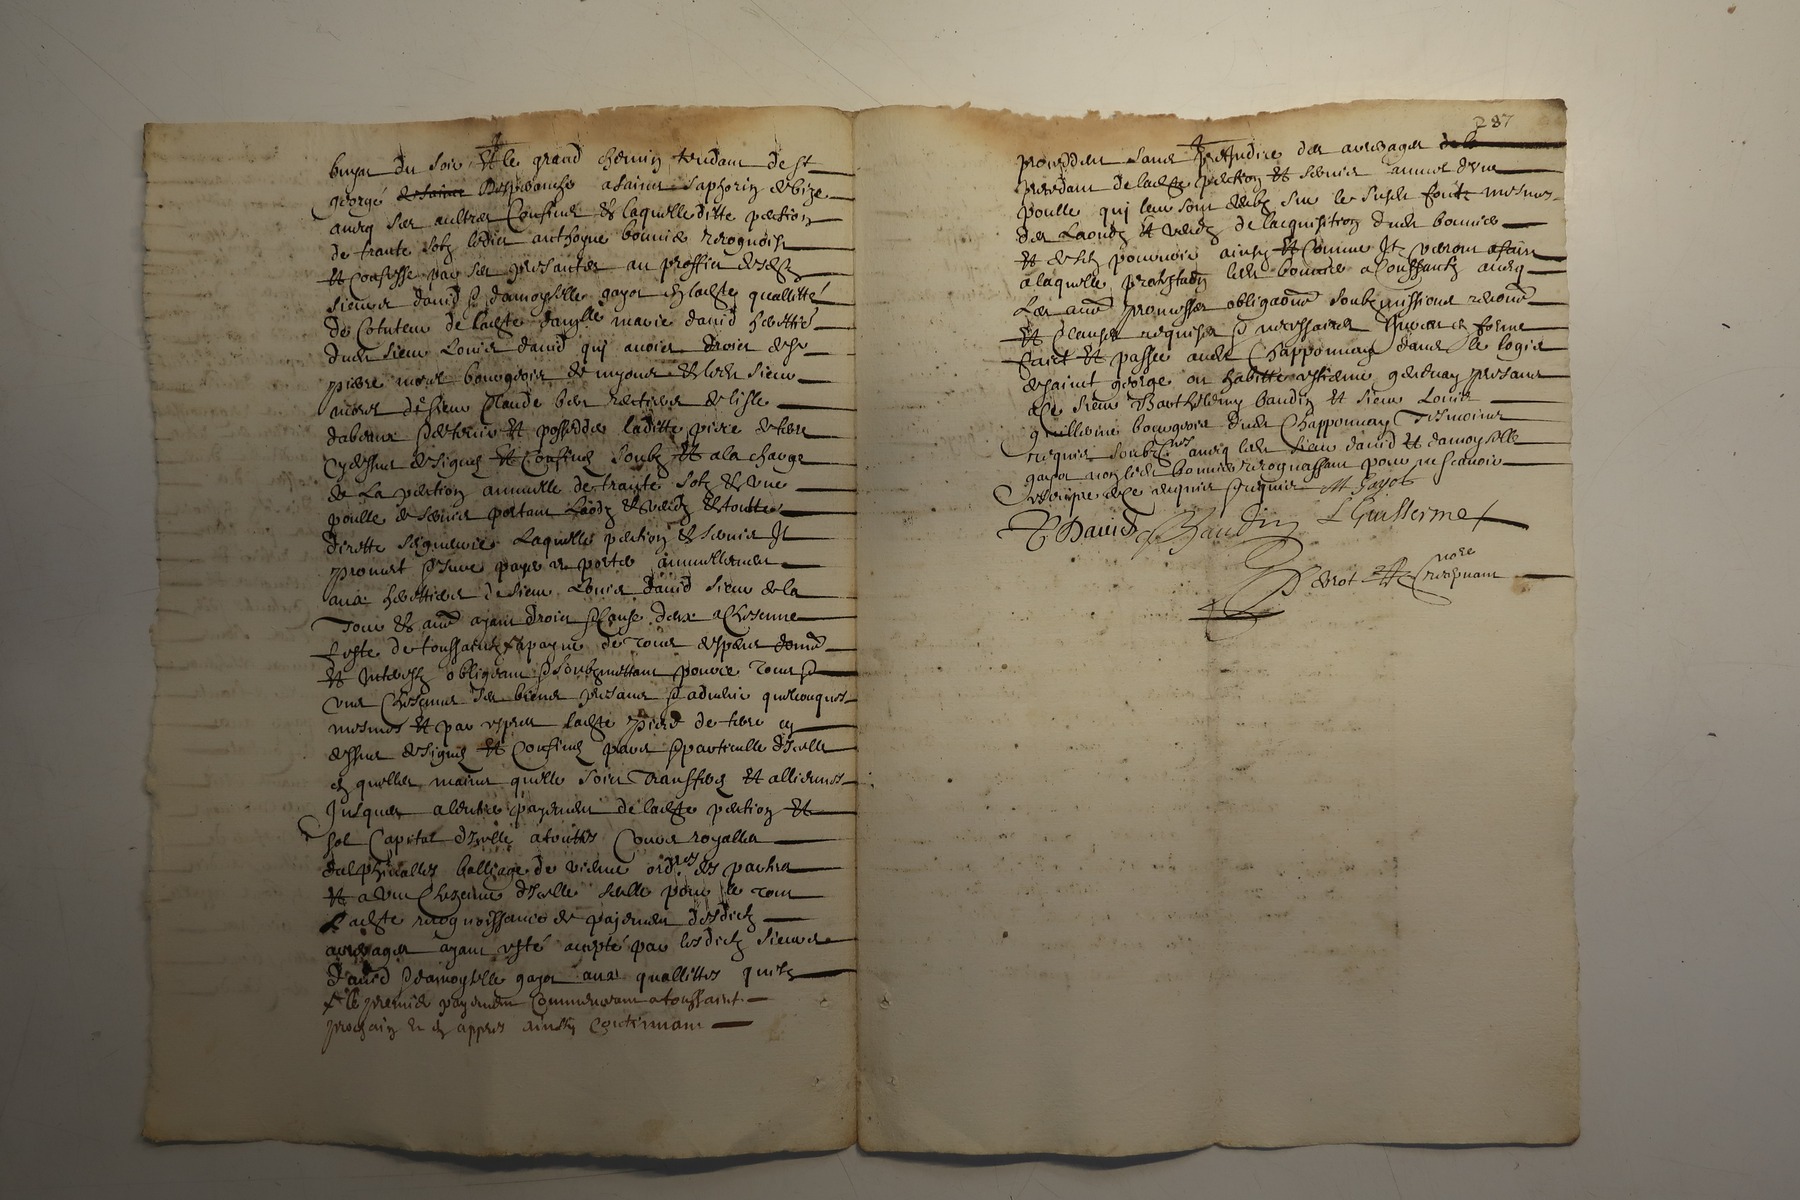 buyer du soir et le grand chemin tendant de st
george despéranche a sainct saphorin de bize
avecq ses aultres confins et laquelle ditte pention
de trante solz ledict anthoyne bonnier recognoist
et confesse par ses presantes au proffict desdictz
sieur david et damoyselle gayot en ladicte quallitté
de cotuteur de ladicte damoyselle marie david herettiere
dudict sieur Louis david qui avoict droict de sr
pierre morel bourgeois de myons et ledict sieur
morel de sieur Claude
dabvoir detenir et posseder laditte piece de terre
cy dessus designee et confinee soubz et a la charge
de la pention annuelle de trante solz et une
poulle de servis portant laodz et vendz et toutte
directe seigneurie Laquelle pention et servis Il
promet et jure payer et porter annuellement
aux herettiers de sieur Louis david sieur de la
Tour et aux ayant droict et cause deux a chescune
feste de toussainctz a payne de tous despens dom
et interestz obligeant et soubzmettant pource tous et
uns chescuns ses biens presans et advenir quelconques
mesmes et par expres ladicte piece de terre cy
dessus designee et confinee part et particulle d'icelle
en quelles mains quelle soict transferee et allienee
Jusques a lentier payement de ladicte pention et
sol capital dicelle a touttes cours royalles
dalphinalles balliage de vienne ord.res des parties
et a une chescune dicelle seulle pour le tout
Ladicte recognoissance et payement desdictz
arreyrages ayant esté accepté par lesdictz sieur
david et damoyselle gayot aux quallittes quilz
le premier payement commenceant a toussainct
prochain et en appres ainsy continuant
287
procedent sans prejudice des arreyrages
pendant de ladicte pention et servis annuel dune
poulle qui leur sont deubz sur le susdict fondz mesmes
des Laoudz et vendz de lacquisition dudict bonnier
et desditz pouvoir ainsy et comme Il verront a faire
a laquelle protestation ledict bonnier a consenty avecq
Les au promesses obligaons soubzmissions renon
et clauses requises et necessaires
Faict et passé audict Chapponnay dans le logis
de sainct george ou habitte estienne gerenay presans
a ce sieur Barthelemy baudin et sieur Louis
guillerme bourgeois dudict Chapponnay Tesmoins
requis soubz.nes avecq ledict sieur david et damoyselle
gayot non ledict bonnier recognoissant pour ne scavoir
escripre de ce enquis et requis M Gayot
C David Baudin L Guillerme
Perrot no.re recepvant